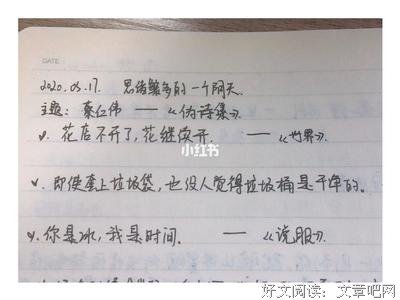 DATE
2020.05.17. 思绪繁多的一个阴天.
主题：秦仁伟 —— 《伪诗集》
v. 花店不开了，花继续开 —— 《世界》.
小红书
v. 即使套上垃圾袋，也没人觉得垃圾桶是干净的.
v. 你是冰，我是时间. —— 《说服》.
好文阅读：文章吧网